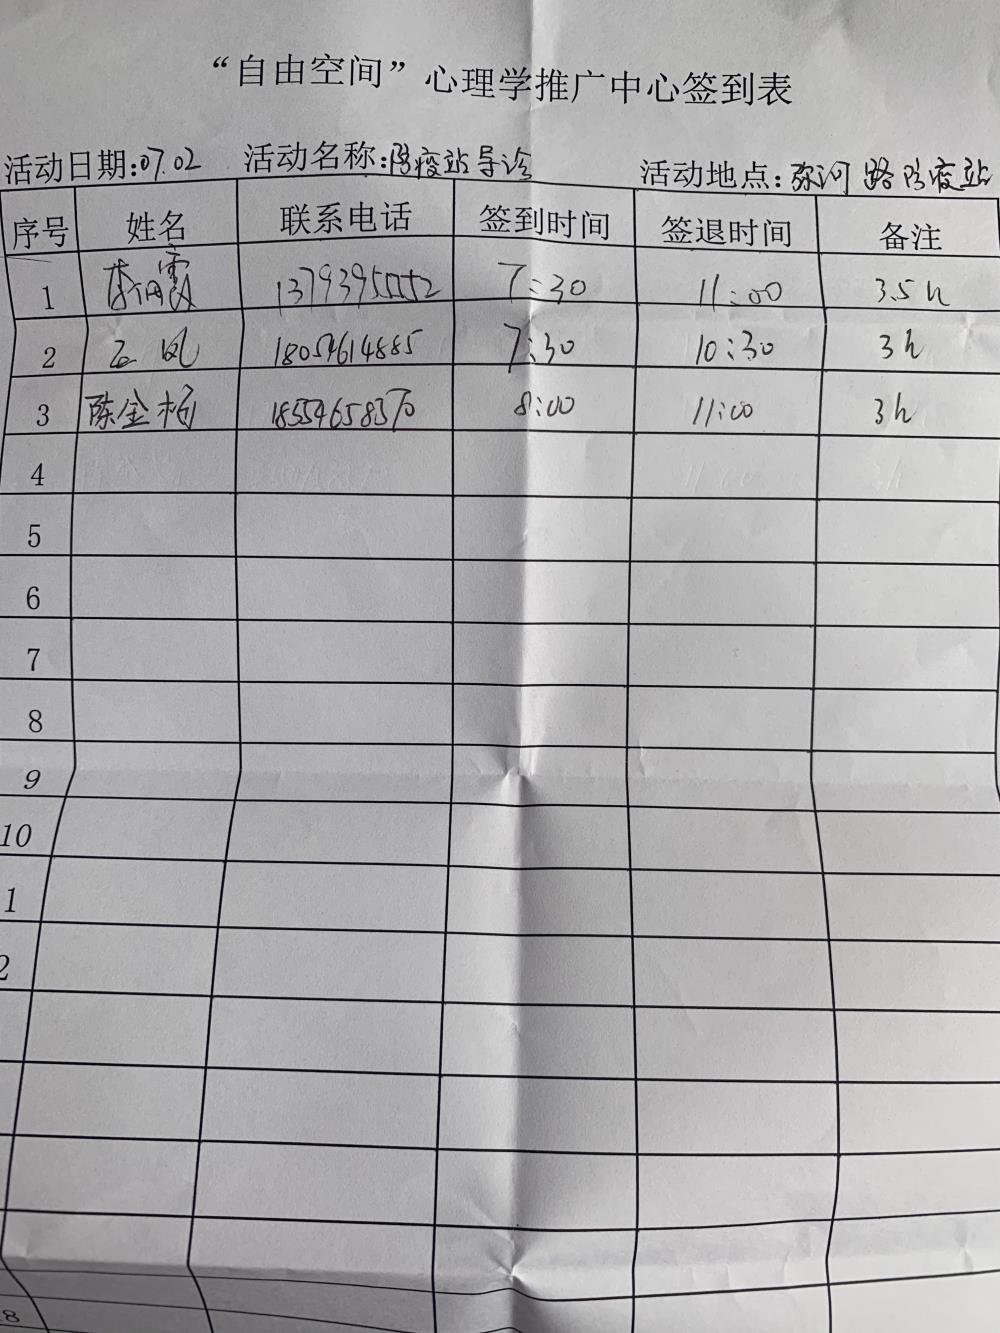 “自由空间”心理学推广中心签到表
活动日期:07.02 活动名称:防疫站导诊 活动地点:弥河路防疫站
序号 姓名 联系电话 签到时间 签退时间 备注
1 霞 13793955552 7:30 11:00 3.5h
2 凤 18054614885 7:30 10:30 3h
3 陈金杨 18554658370 8:00 11:00 3h
4
5
6
7
8
9
10
1
2
8